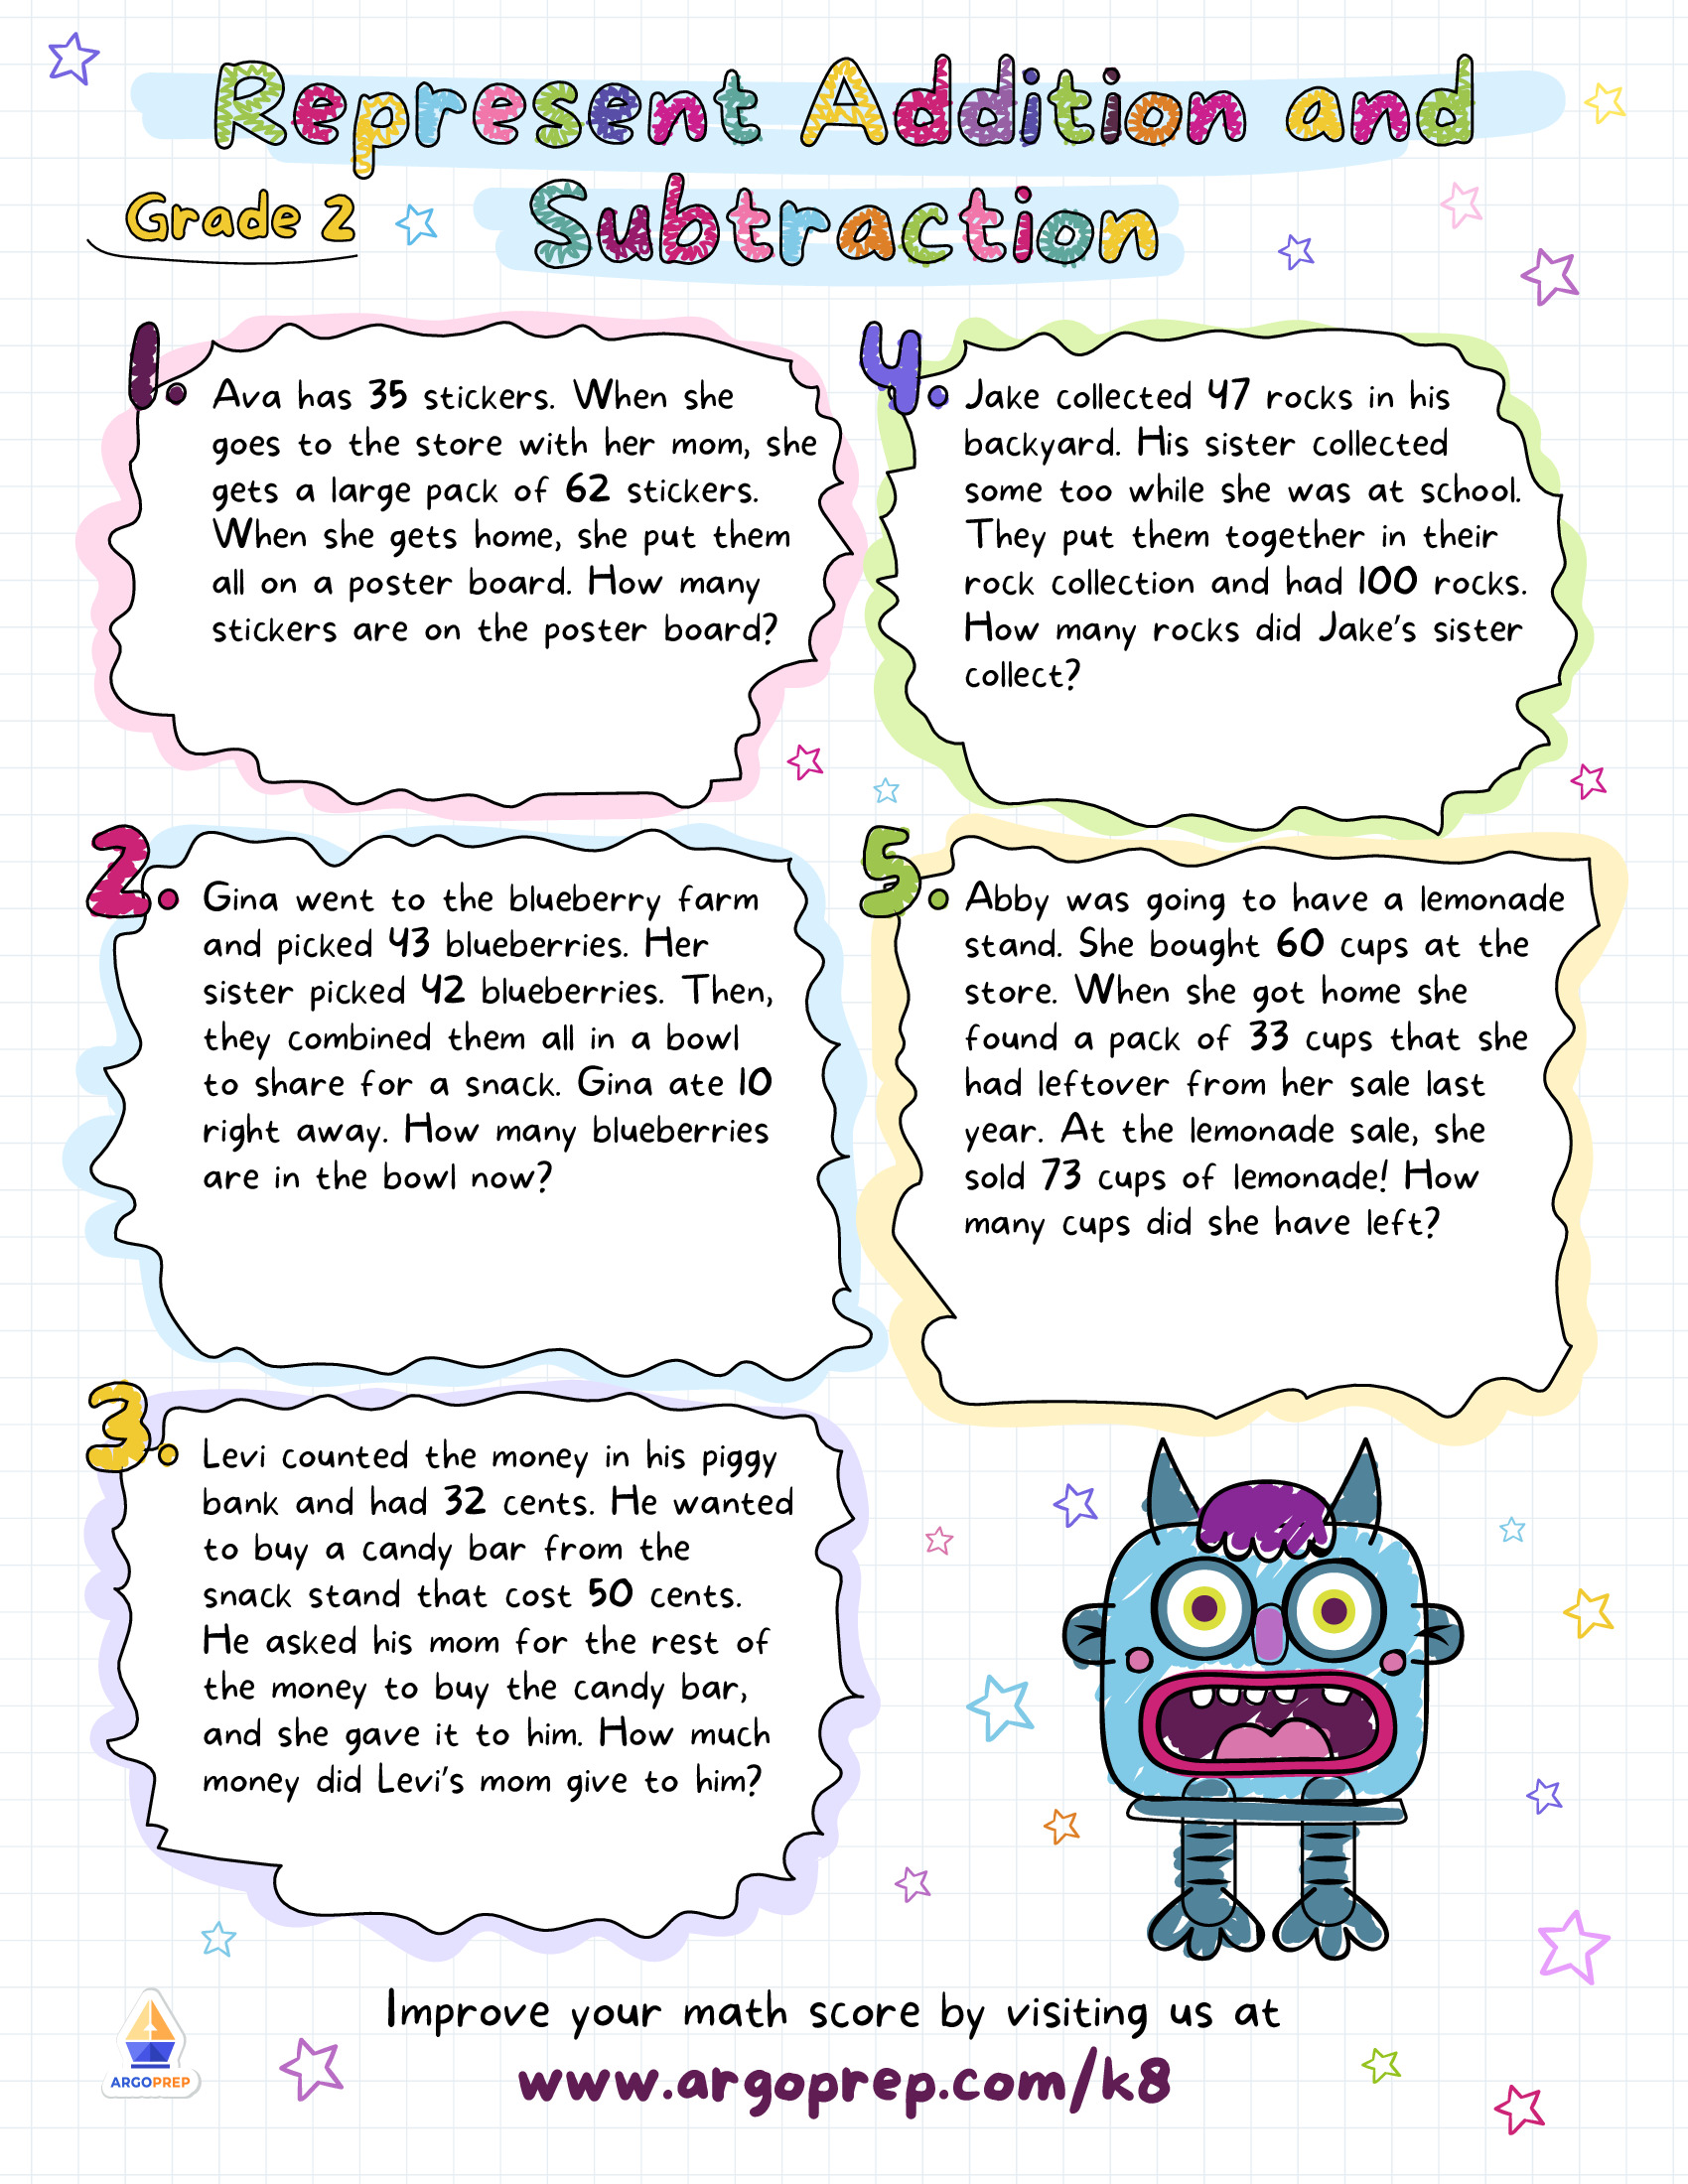 Represent Addition and
Subtraction
Grade 2
1. Ava has 35 stickers. When she
goes to the store with her mom, she
gets a large pack of 62 stickers.
When she gets home, she put them
all on a poster board. How many
stickers are on the poster board?
2. Gina went to the blueberry farm
and picked 43 blueberries. Her
sister picked 42 blueberries. Then,
they combined them all in a bowl
to share for a snack. Gina ate 10
right away. How many blueberries
are in the bowl now?
3. Levi counted the money in his piggy
bank and had 32 cents. He wanted
to buy a candy bar from the
snack stand that cost 50 cents.
He asked his mom for the rest of
the money to buy the candy bar,
and she gave it to him. How much
money did Levi's mom give to him?
4. Jake collected 47 rocks in his
backyard. His sister collected
some too while she was at school.
They put them together in their
rock collection and had 100 rocks.
How many rocks did Jake's sister
collect?
5. Abby was going to have a lemonade
stand. She bought 60 cups at the
store. When she got home she
found a pack of 33 cups that she
had leftover from her sale last
year. At the lemonade sale, she
sold 73 cups of lemonade! How
many cups did she have left?
Improve your math score by visiting us at
www.argoprep.com/k8
ARGOPREP